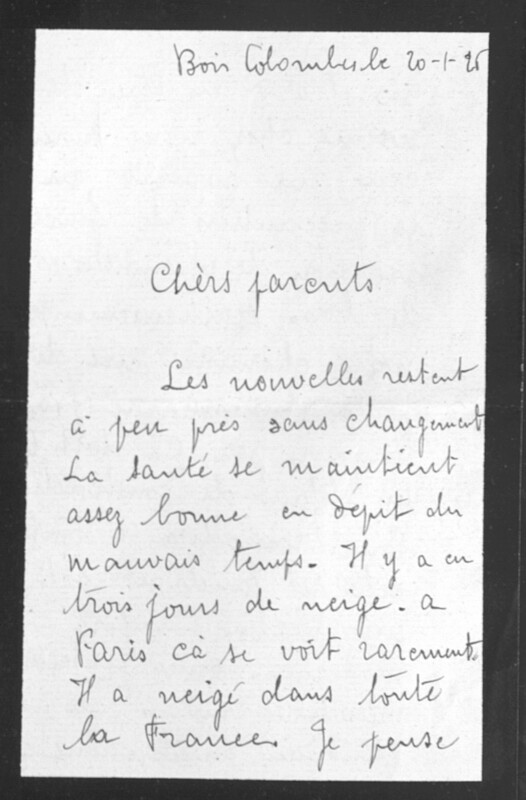 Bois Colombes le 20-1-26
Chèrs parents
Les nouvelles restent
à peu près sans changement
La santé se maintient
assez bonne en dépit du
mauvais temps. Il y a eu
trois jours de neige. a
Paris cà se voit rarement.
Il a neigé dans toute
la France. Je pense